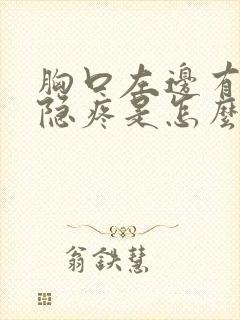 胸口左邊有
隐疼是怎麼
翁鉄慧